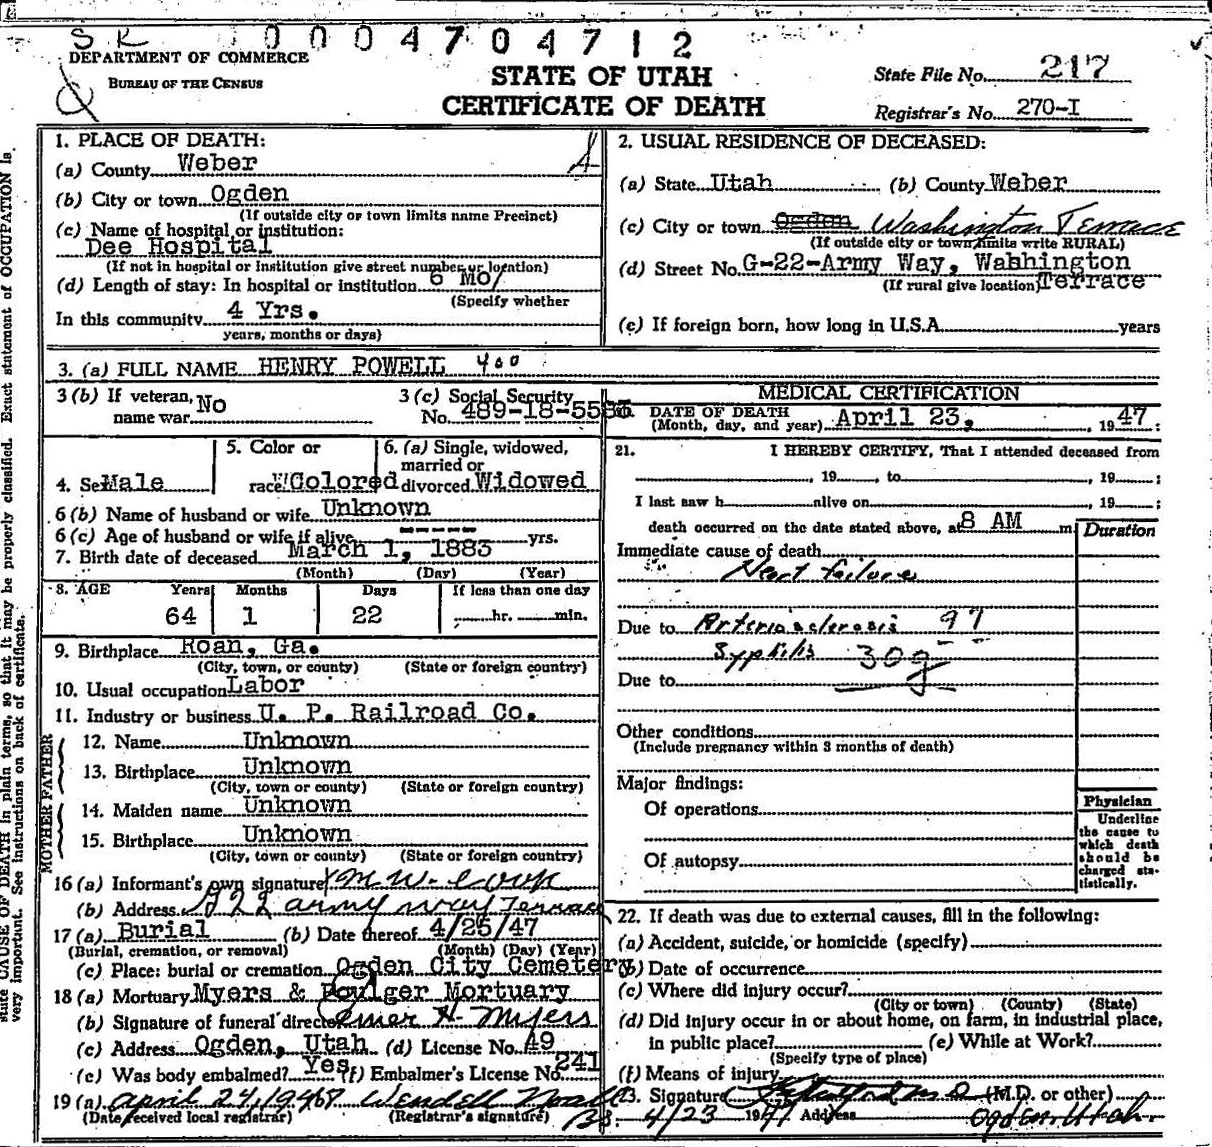 S K 0 0 0 4 7 0 4 7 1 2
DEPARTMENT OF COMMERCE
BUREAU OF THE CENSUS
STATE OF UTAH
CERTIFICATE OF DEATH
State File No. 217
Registrar's No. 270-I
state CAUSE OF DEATH in plain terms, so that it may be properly classified. Exact statement of OCCUPATION is
very important. See instructions on back of certificate.
1. PLACE OF DEATH:
(a) County Weber
(b) City or town Ogden
(If outside city or town limits name Precinct)
(c) Name of hospital or institution:
Dee Hospital
(If not in hospital or institution give street number or location)
(d) Length of stay: In hospital or institution 6 Mo/
(Specify whether
In this community 4 Yrs.
years, months or days)
2. USUAL RESIDENCE OF DECEASED:
(a) State Utah (b) County Weber
(c) City or town Ogden Washington Terrace
(If outside city or town limits write RURAL)
(d) Street No. G-22-Army Way, Wabhington
(If rural give location) Terrace
(e) If foreign born, how long in U.S.A. years
3. (a) FULL NAME HENRY POWELL 400
3 (b) If veteran, No
name war
3 (c) Social Security
No. 489-18-5585
4. Sex Male
5. Color or
race Colored
6. (a) Single, widowed,
married or
divorced Widowed
6 (b) Name of husband or wife Unknown
6 (c) Age of husband or wife if alive ---- yrs.
7. Birth date of deceased March 1, 1883
(Month) (Day) (Year)
8. AGE Years Months Days If less than one day
64 1 22 hr. min.
9. Birthplace Roan, Ga.
(City, town, or county) (State or foreign country)
10. Usual occupation Labor
11. Industry or business U. P. Railroad Co.
FATHER
12. Name Unknown
13. Birthplace Unknown
(City, town or county) (State or foreign country)
MOTHER
14. Maiden name Unknown
15. Birthplace Unknown
(City, town or county) (State or foreign country)
16 (a) Informant's own signature M W. Cook
(b) Address G 22 army way Terrace
17 (a) Burial (b) Date thereof 4/25/47
(Burial, cremation, or removal) (Month) (Day) (Year)
(c) Place: burial or cremation Ogden City Cemetery
18 (a) Mortuary Myers & Foulger Mortuary
(b) Signature of funeral director Elmer H. Myers
(c) Address Ogden, Utah (d) License No. 49
(e) Was body embalmed? Yes (f) Embalmer's License No. 241
19 (a) April 24, 1947 Wendell
(Date received local registrar) (Registrar's signature)
MEDICAL CERTIFICATION
20. DATE OF DEATH
(Month, day, and year) April 23, 1947;
21. I HEREBY CERTIFY, That I attended deceased from
, 19 , to , 19 ;
I last saw h alive on 19 ;
death occurred on the date stated above, at 8 AM m.
Duration
Immediate cause of death
Heart failure
Due to Arteriosclerosis 97
Syphilis 30g
Due to
Other conditions
(Include pregnancy within 3 months of death)
Major findings:
Of operations
Of autopsy
Physician
Underline
the cause to
which death
should be
charged sta-
tistically.
22. If death was due to external causes, fill in the following:
(a) Accident, suicide, or homicide (specify)
(b) Date of occurrence
(c) Where did injury occur?
(City or town) (County) (State)
(d) Did injury occur in or about home, on farm, in industrial place,
in public place? (e) While at Work?
(Specify type of place)
(f) Means of injury
23. Signature (M.D. or other)
4/23 1947 Address Ogden Utah